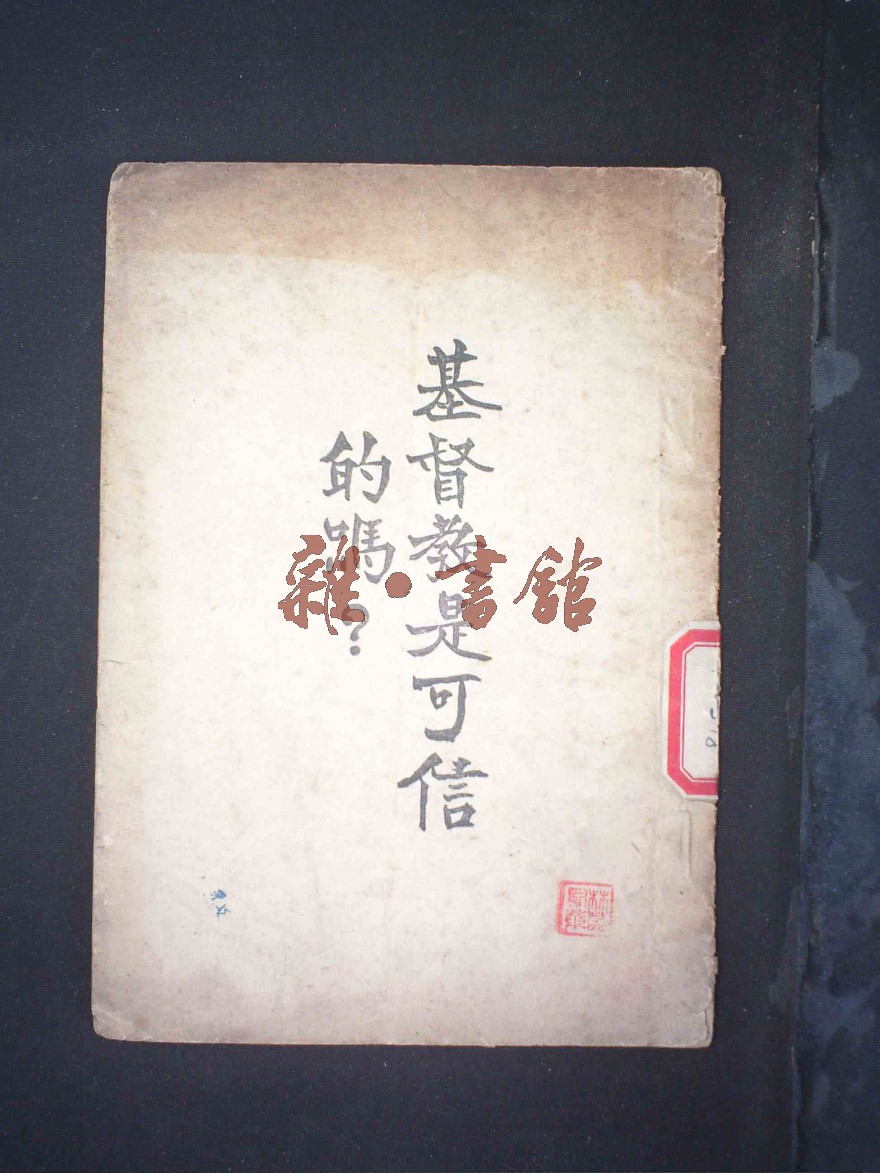 基督教是可信
的嗎？
雜·書館